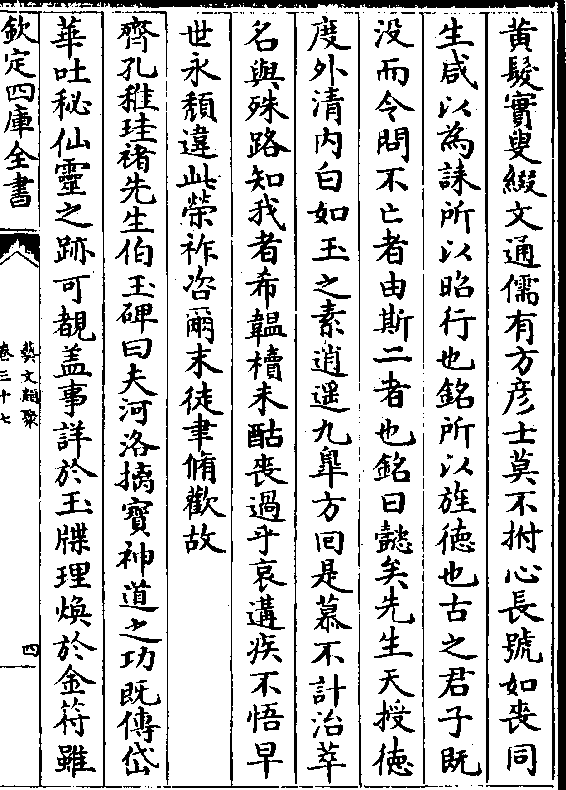 黄髮實叟綴文通儒有方彦士莫不拊心長號如喪同
生咸以為誄所以昭行也銘所以旌徳也古之君子既
沒而令問不亡者由斯二者也銘曰懿矣先生天授徳
度外清内白如玉之素逍遥九臯方回是慕不計治萃
名與殊路知我者希韞櫝未酤喪過乎哀遘疾不悟早
世永頽違此榮祚咨爾末徒聿脩歡故
齊孔稚珪褚先生伯玉碑曰夫河洛摛寶神道之功既傳岱
華吐秘仙靈之跡可覩盖事詳於玉牒理煥於金符雖
欽定四庫全書
藝文類聚
卷三十七
四